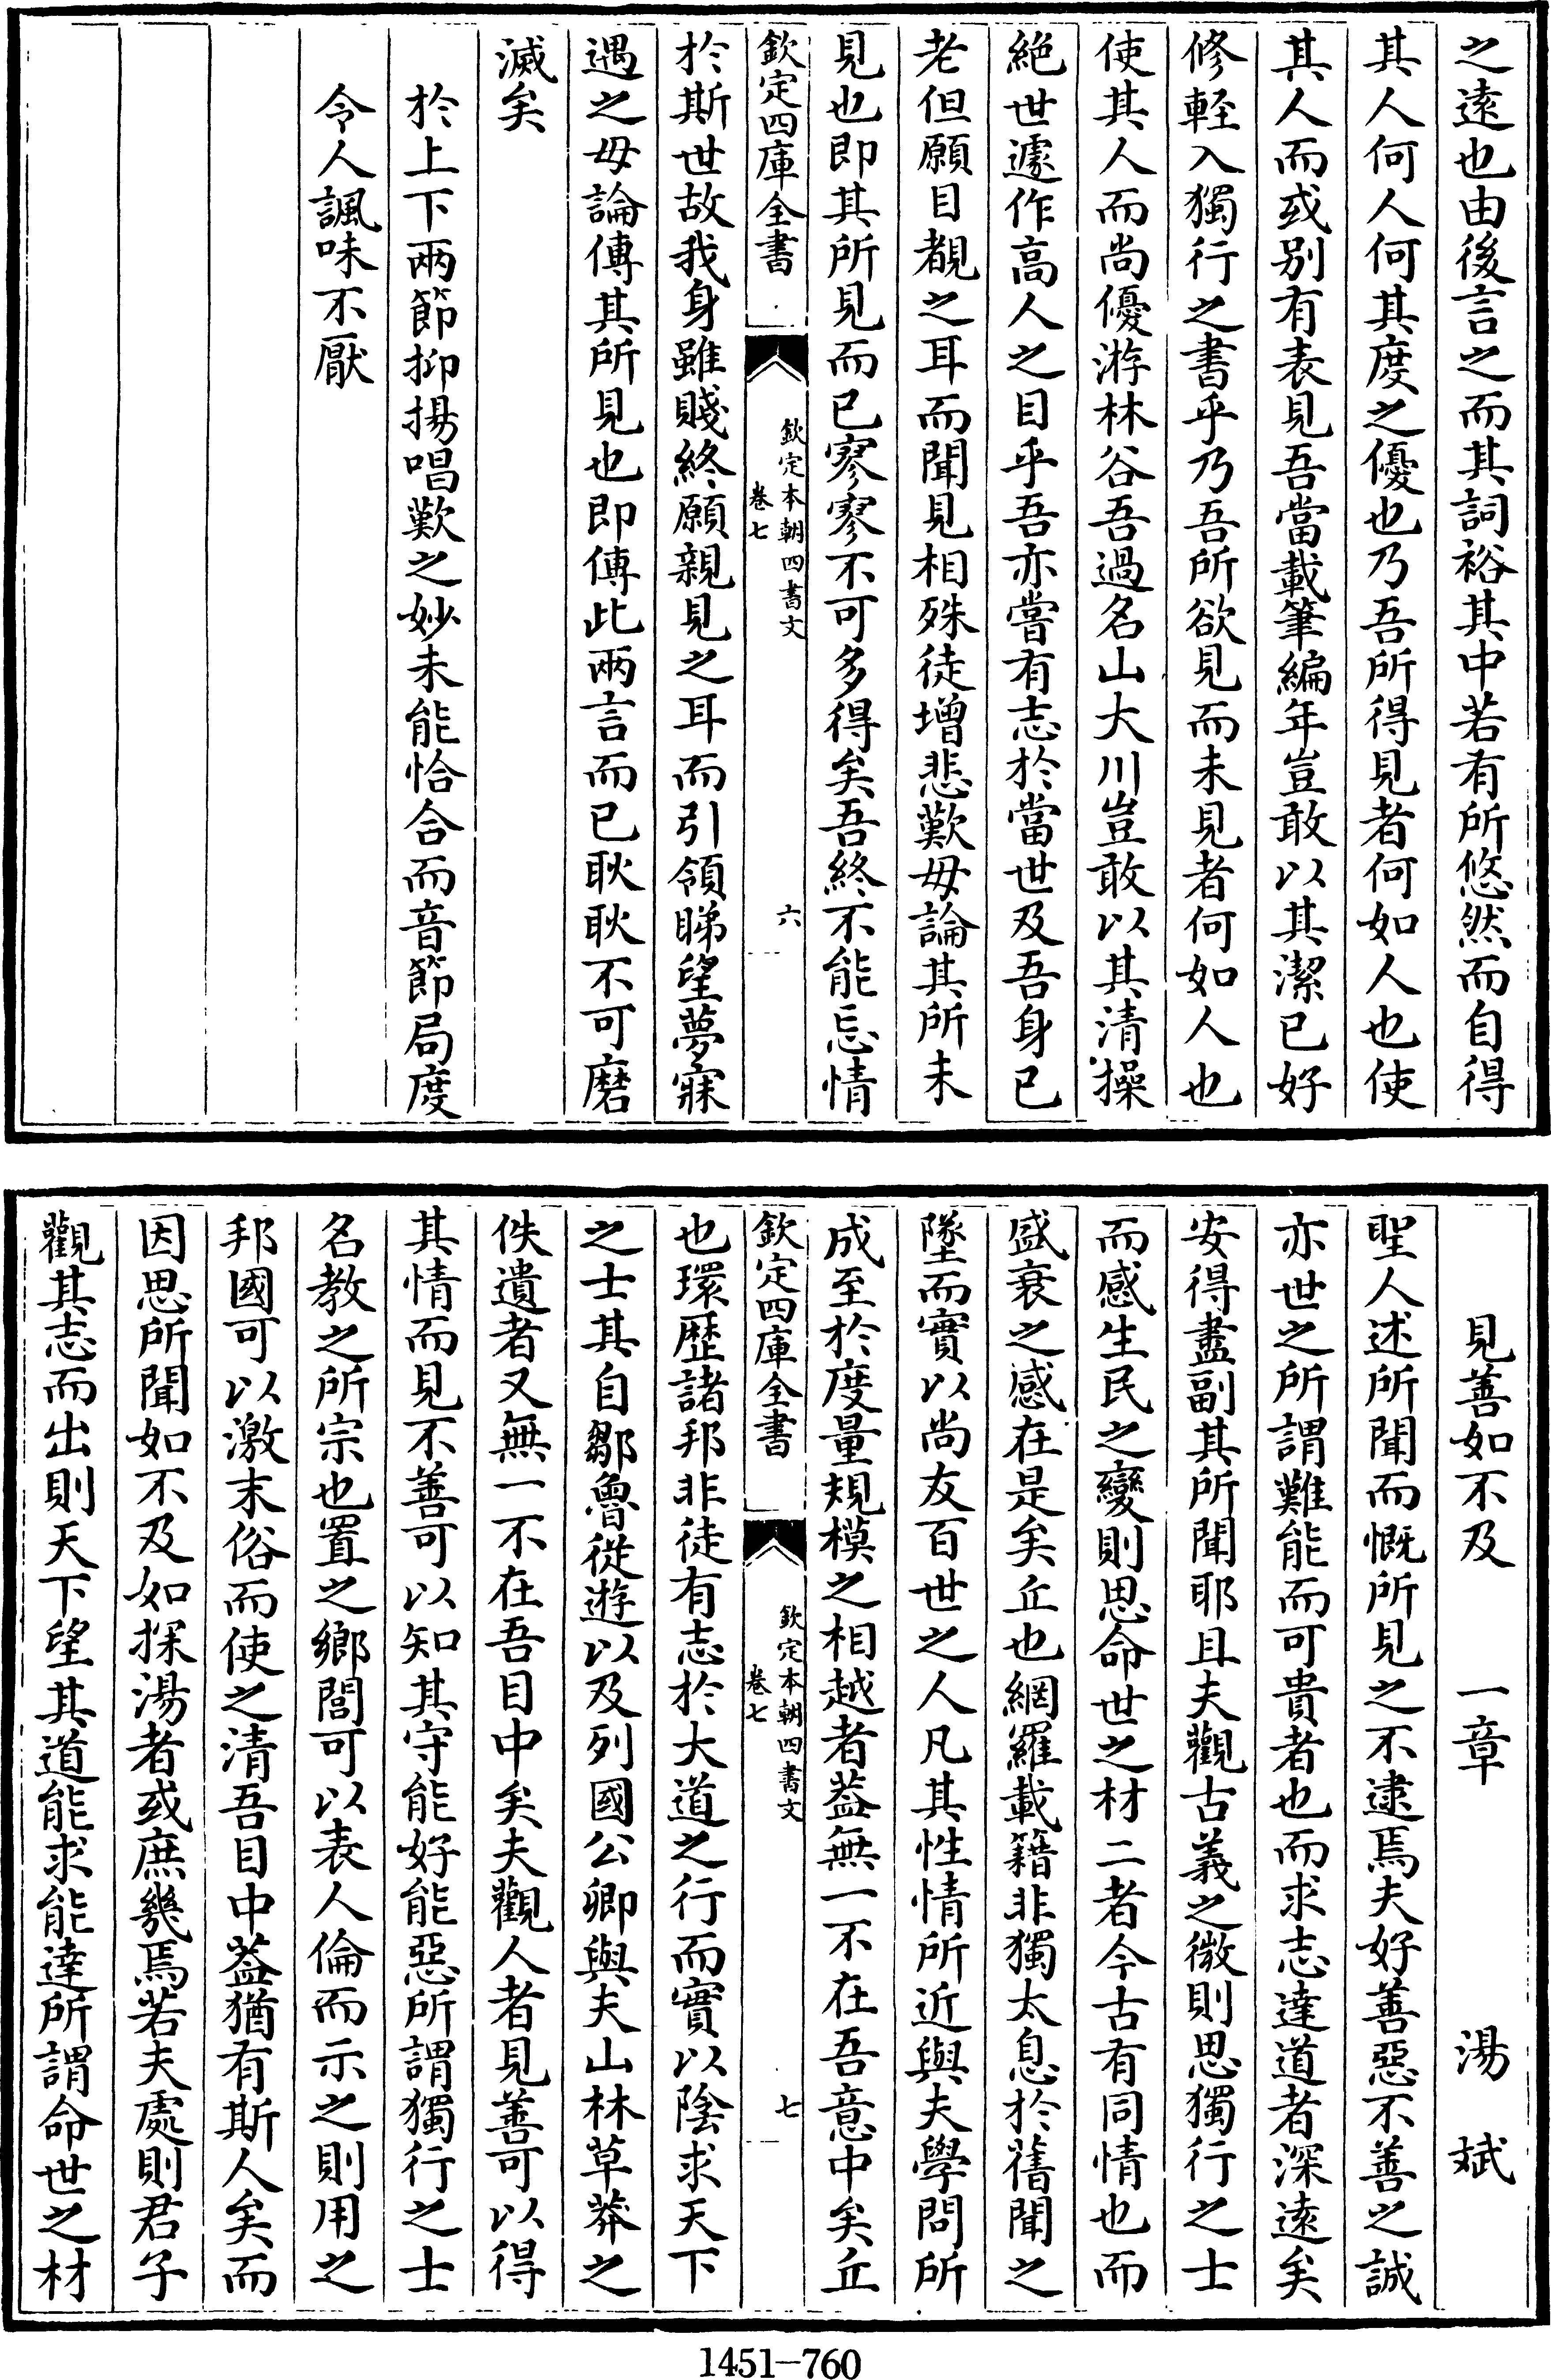 之遠也由後言之而其詞裕其中若有所悠然而自得
其人何人何其度之優也乃吾所得見者何如人也使
其人而或别有表見吾當載筆編年豈敢以其潔已好
修輕入獨行之書乎乃吾所欲見而未見者何如人也
使其人而尚優游林谷吾過名山大川豈敢以其清操
絶世遽作高人之目乎吾亦嘗有志於當世及吾身已
老但願目覩之耳而聞見相殊徒增悲歎毋論其所未
見也即其所見而已寥寥不可多得矣吾終不能忘情
欽定四庫全書
欽定本朝四書文
卷七
六
於斯世故我身雖賤終願親見之耳而引領睇望夢寐
遇之毋論傳其所見也即傳此兩言而已耿耿不可磨
滅矣
於上下兩節抑揚唱歎之妙未能恰合而音節局度
令人諷味不厭
見善如不及 一章 湯斌
聖人述所聞而慨所見之不逮焉夫好善惡不善之誠
亦世之所謂難能而可貴者也而求志達道者深遠矣
安得盡副其所聞耶且夫觀古義之微則思獨行之士
而感生民之變則思命世之材二者今古有同情也而
盛衰之感在是矣丘也網羅載籍非獨太息於舊聞之
墜而實以尚友百世之人凡其性情所近與夫學問所
成至於度量規模之相越者葢無一不在吾意中矣丘
欽定四庫全書
欽定本朝四書文
卷七
七
也環歴諸邦非徒有志於大道之行而實以陰求天下
之士其自鄒魯從遊以及列國公卿與夫山林草莽之
佚遺者又無一不在吾目中矣夫觀人者見善可以得
其情而見不善可以知其守能好能惡所謂獨行之士
名教之所宗也置之鄉閭可以表人倫而示之則用之
邦國可以激末俗而使之清吾目中葢猶有斯人矣而
因思所聞如不及如探湯者或庶幾焉若夫處則君子
觀其志而出則天下望其道能求能達所謂命世之材
1451-760